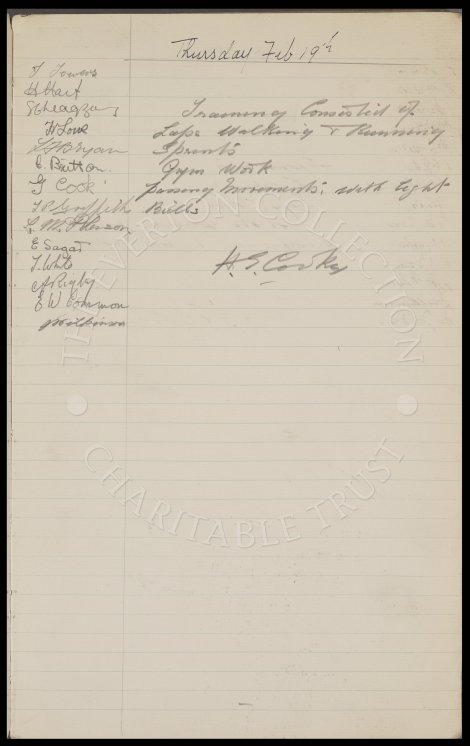 Thursday Feb 19th
T Towers
H Hart
G Cheagzay
H Lowe
T H Bryan
C. Britton.
G Cook
T P Griffith
L. McPherson
E Sagar
T. White
A Rigby
E W Common
Wilkinson
Training Consisted of
Laps Walking & Running
Sprints
Gym Work
passing movements; with light
Balls
H. E. Cooke
THE EVERTON COLLECTION
CHARITABLE TRUST